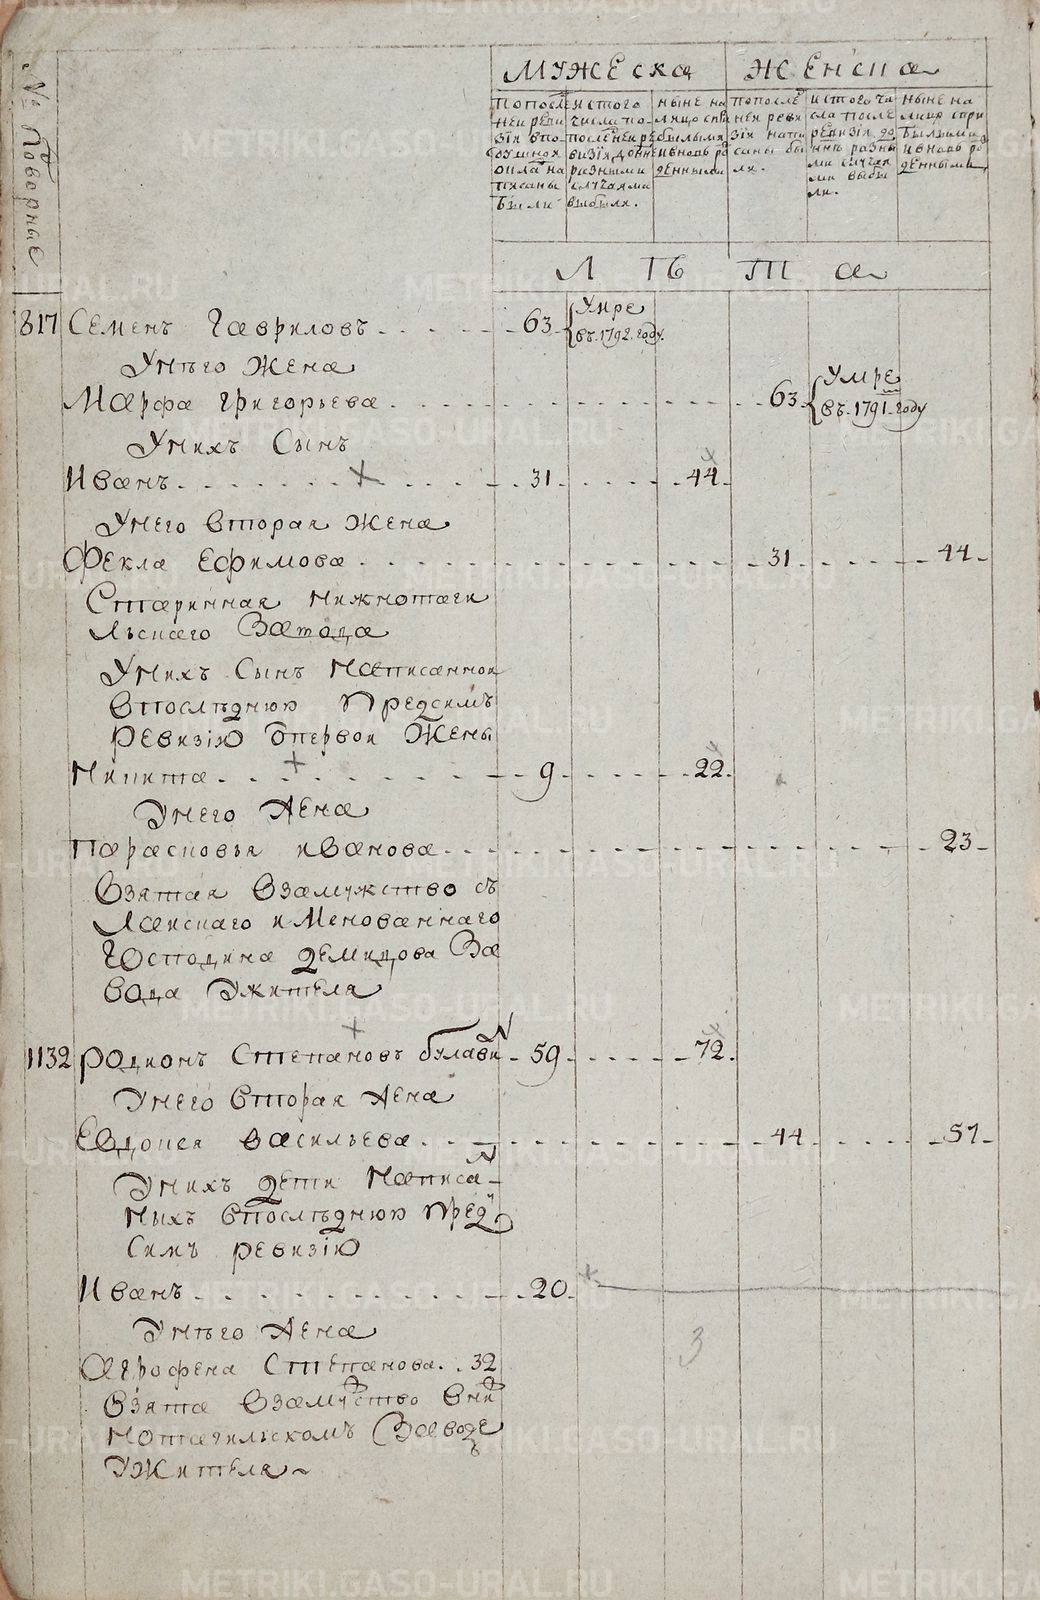 № Дворные
МУЖЕСКА
ЖЕНСКА
По после
ней реви
зiи в по
душной
оклад на
писаны
были
Ис того
числа по
после ней ре
визiи до нне
разными
случаями
выбыли.
Ныне на
лицо с при
былыми
и вновь ро
жденными
По после
ней реви
зiи напи
саны бы
ли.
Ис того чи
сла после
ревизiи до
ннѣ разны
ми случая
ми выбы
ли.
Ныне на
лицо с при
былыми
и вновь ро
жденными
ЛѢТА
817 Семенъ Гавриловъ 63 Умре
въ 1792 году.
У него Жена
Марфа григорьева 63 Умре
въ 1791 году
У нихъ Сынъ
Иванъ 31 44
У него вторая Жена
Фекла Ефимова 31 44
Старинная нижнотаги
льскаго Завода
У нихъ Сынъ Написанной
в последнюю Предсимъ
Ревизiю от первой Жены
Никита 9 22
У него Жена
Парасковья иванова 23
Взятая в замужство съ
Лайскаго имянованнаго
Господина демидова За
вода Ужителя
1132 Родионъ Степановъ булавин 59 72
У него вторая Жена
Евдокия васильева 44 57
У нихъ дети Написа
ныхъ в последнюю пред
Симъ ревизiю
Иванъ 20
У него Жена
3
Агрофена Степанова 32
Взята в замужство в ни
жнотагильскомъ Заводе
У Жителя
METRIKI.GASO-URAL.RU